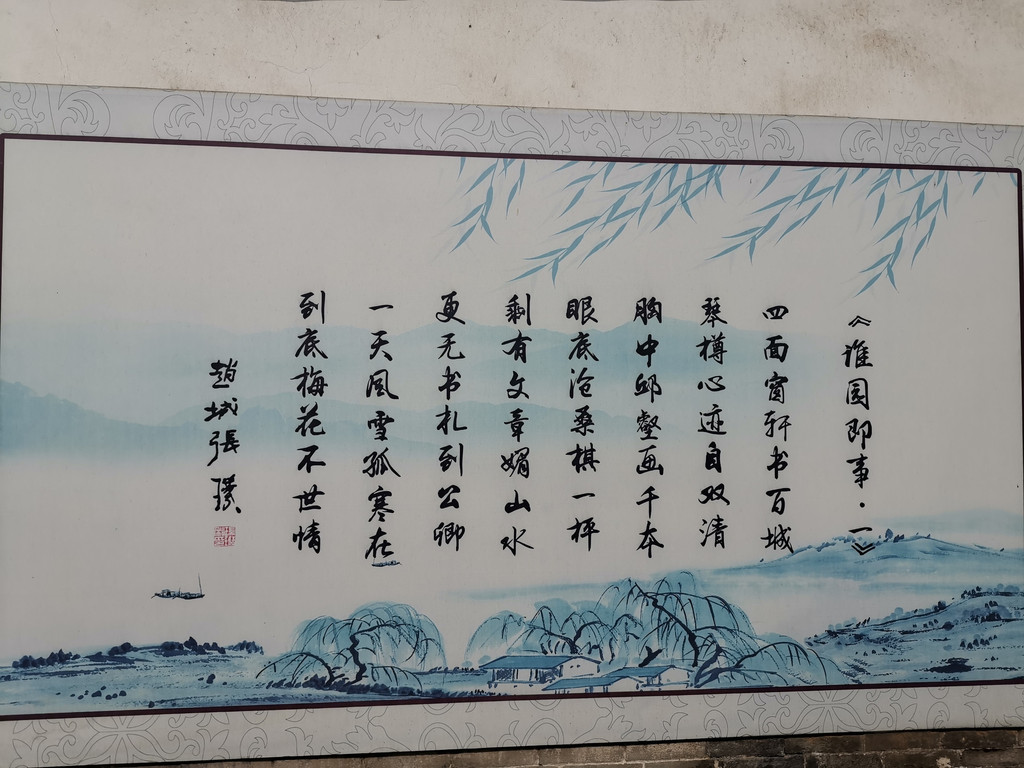 《谁园即事·一》
四面窗轩书百城
琴樽心迹自双清
胸中邱壑画千本
眼底沧桑棋一枰
剩有文章媚山水
更无书札到公卿
一天风雪孤寒在
到底梅花不世情
趙城張瑛